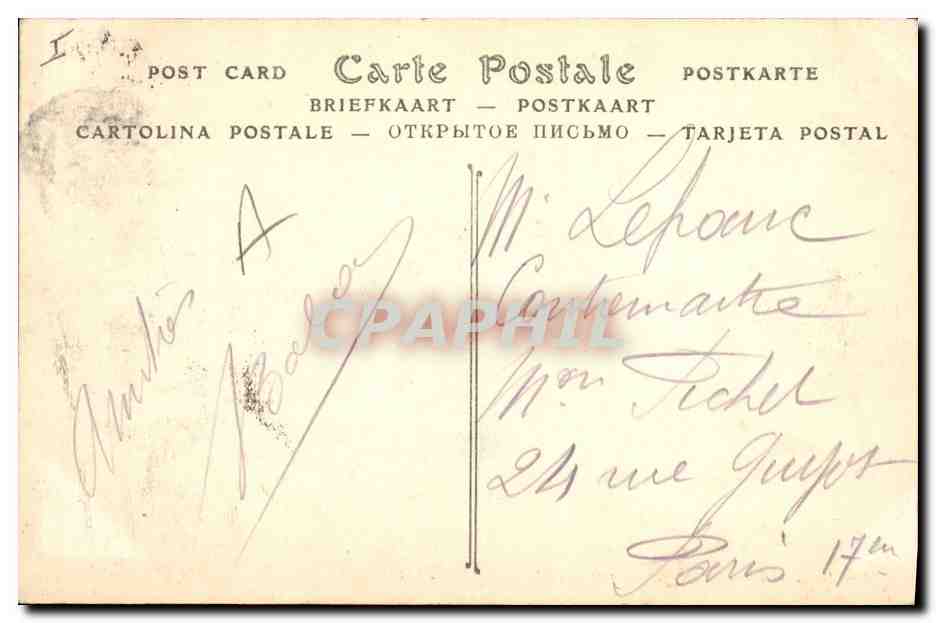 I
POST CARD Carte Postale POSTKARTE
BRIEFKAART — POSTKAART
CARTOLINA POSTALE — ОТКРЫТОЕ ПИСЬМО — TARJETA POSTAL
A
Amitiés
CPAPHIL
M. Lefranc
Contremaître
Mon Pichel
24 rue Guyot
Paris 17en